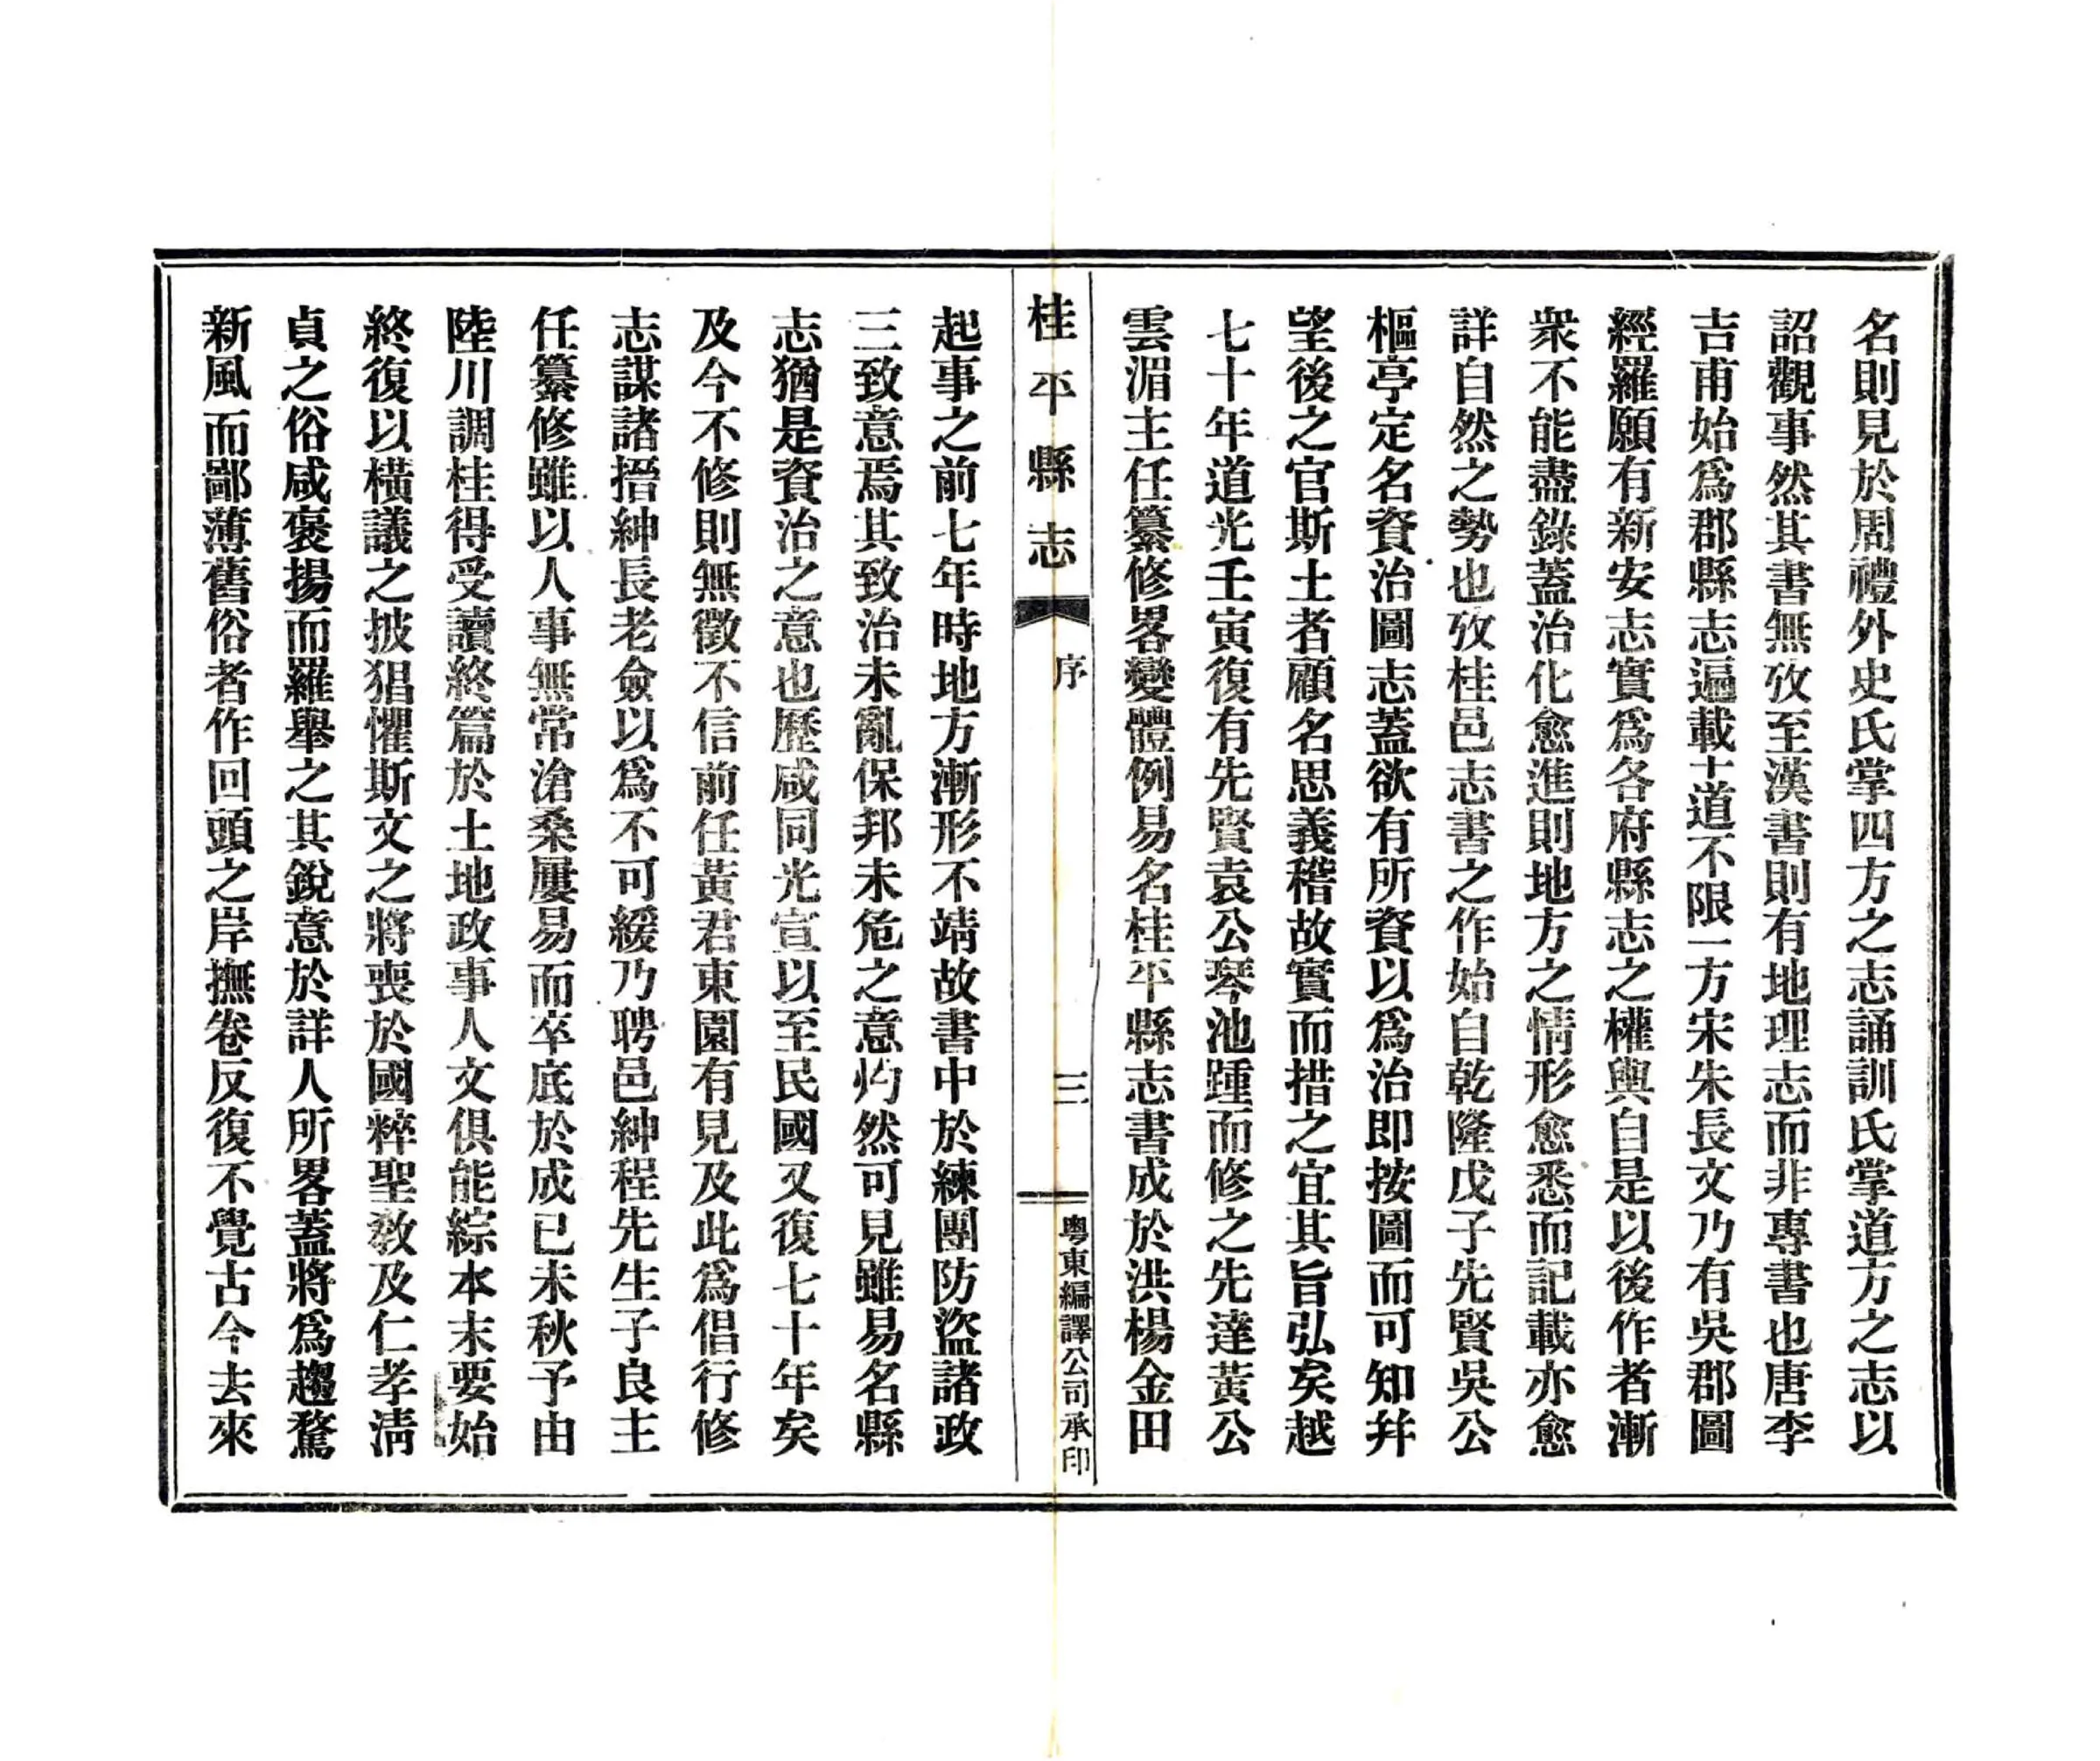 名則見於周禮外史氏掌四方之志誦訓氏掌道方之志以
詔觀事然其書無攷至漢書則有地理志而非專書也唐李
吉甫始爲郡縣志遍載十道不限一方宋朱長文乃有吳郡圖
經羅願有新安志實爲各府縣志之權輿自是以後作者漸
衆不能盡錄蓋治化愈進則地方之情形愈悉而記載亦愈
詳自然之勢也攷桂邑志書之作始自乾隆戊子先賢吳公
樞亭定名資治圖志蓋欲有所資以爲治即按圖而可知幷
望後之官斯土者顧名思義稽故實而措之宜其旨弘矣越
七十年道光壬寅復有先賢袁公琴池踵而修之先達黃公
雲湄主任纂修畧變體例易名桂平縣志書成於洪楊金田
桂平縣志
序
三
粵東編譯公司承印
起事之前七年時地方漸形不靖故書中於練團防盜諸政
三致意焉其致治未亂保邦未危之意灼然可見雖易名縣
志猶是資治之意也歷咸同光宣以至民國又復七十年矣
及今不修則無徵不信前任黃君東園有見及此爲倡行修
志謀諸搢紳長老僉以爲不可緩乃聘邑紳程先生子良主
任纂修雖以人事無常滄桑屢易而卒底於成已未秋予由
陸川調桂得受讀終篇於土地政事人文俱能綜本末要始
終復以橫議之披猖懼斯文之將喪於國粹聖教及仁孝清
貞之俗咸褒揚而羅舉之其銳意於詳人所畧蓋將爲趨騖
新風而鄙薄舊俗者作回頭之岸撫卷反復不覺古今去來